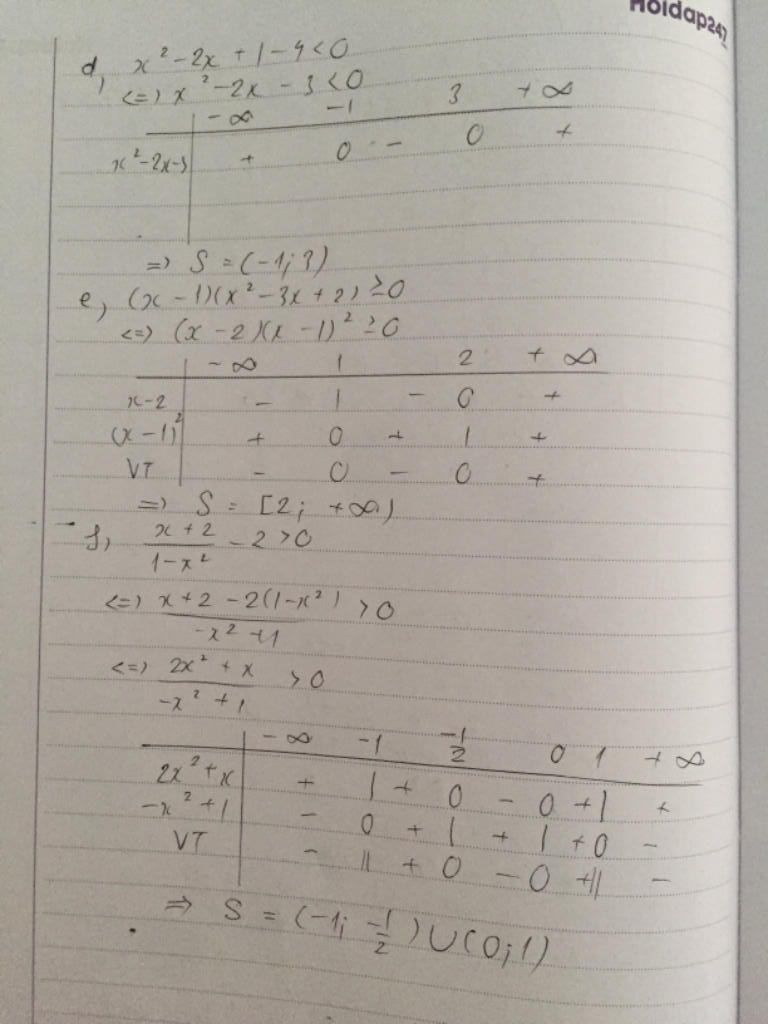 Hoidap247
d, x² - 2x + 1 - 4 < 0
<=> x² - 2x - 3 < 0
-∞ -1 3 +∞
x²-2x-3 + 0 - 0 +
=> S = (-1; 3)
e, (x - 1)(x² - 3x + 2) ≥ 0
<=> (x - 2)(x - 1)² ≥ 0
-∞ 1 2 +∞
x-2 - | - 0 +
(x-1)² + 0 + | +
VT - 0 - 0 +
=> S = [2; +∞)
f, (x+2)/(1-x²) - 2 > 0
<=> (x+2 - 2(1-x²))/(-x²+1) > 0
<=> (2x² + x)/(-x² + 1) > 0
-∞ -1 -1/2 0 1 +∞
2x²+x + | + 0 - 0 + | +
-x²+1 - 0 + | + | + 0 -
VT - || + 0 - 0 + || -
=> S = (-1; -1/2) ∪ (0; 1)